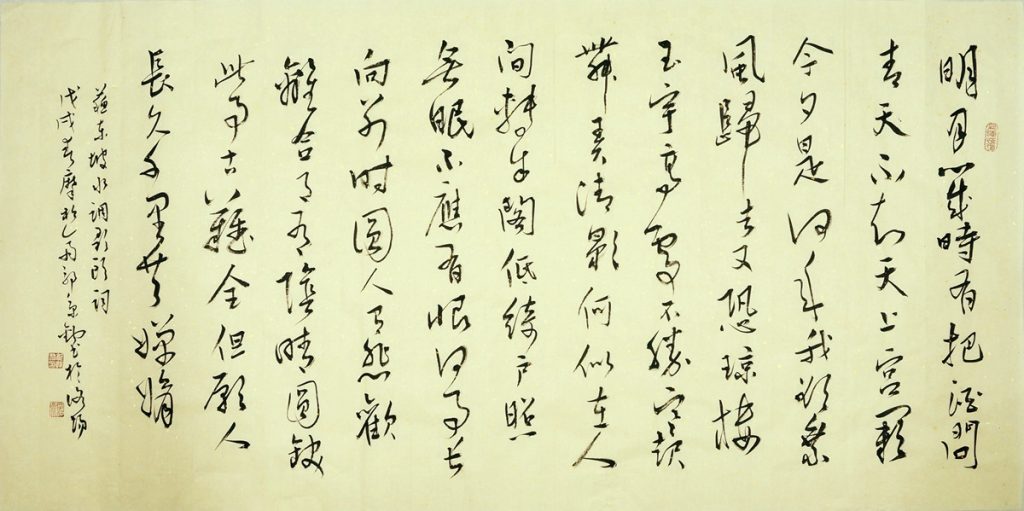 明月幾時有把酒問
青天不知天上宮闕
今夕是何年我欲乘
風歸去又恐琼樓
玉宇高處不勝寒起
舞弄清影何似在人
间轉朱閣低綺户照
無眠不應有恨何事長
向别時圓人有悲歡
離合月有陰晴圓缺
此事古難全但願人
長久千里共嬋娟
蘇東坡水調歌頭詞
戊戌春 郭 於洛陽